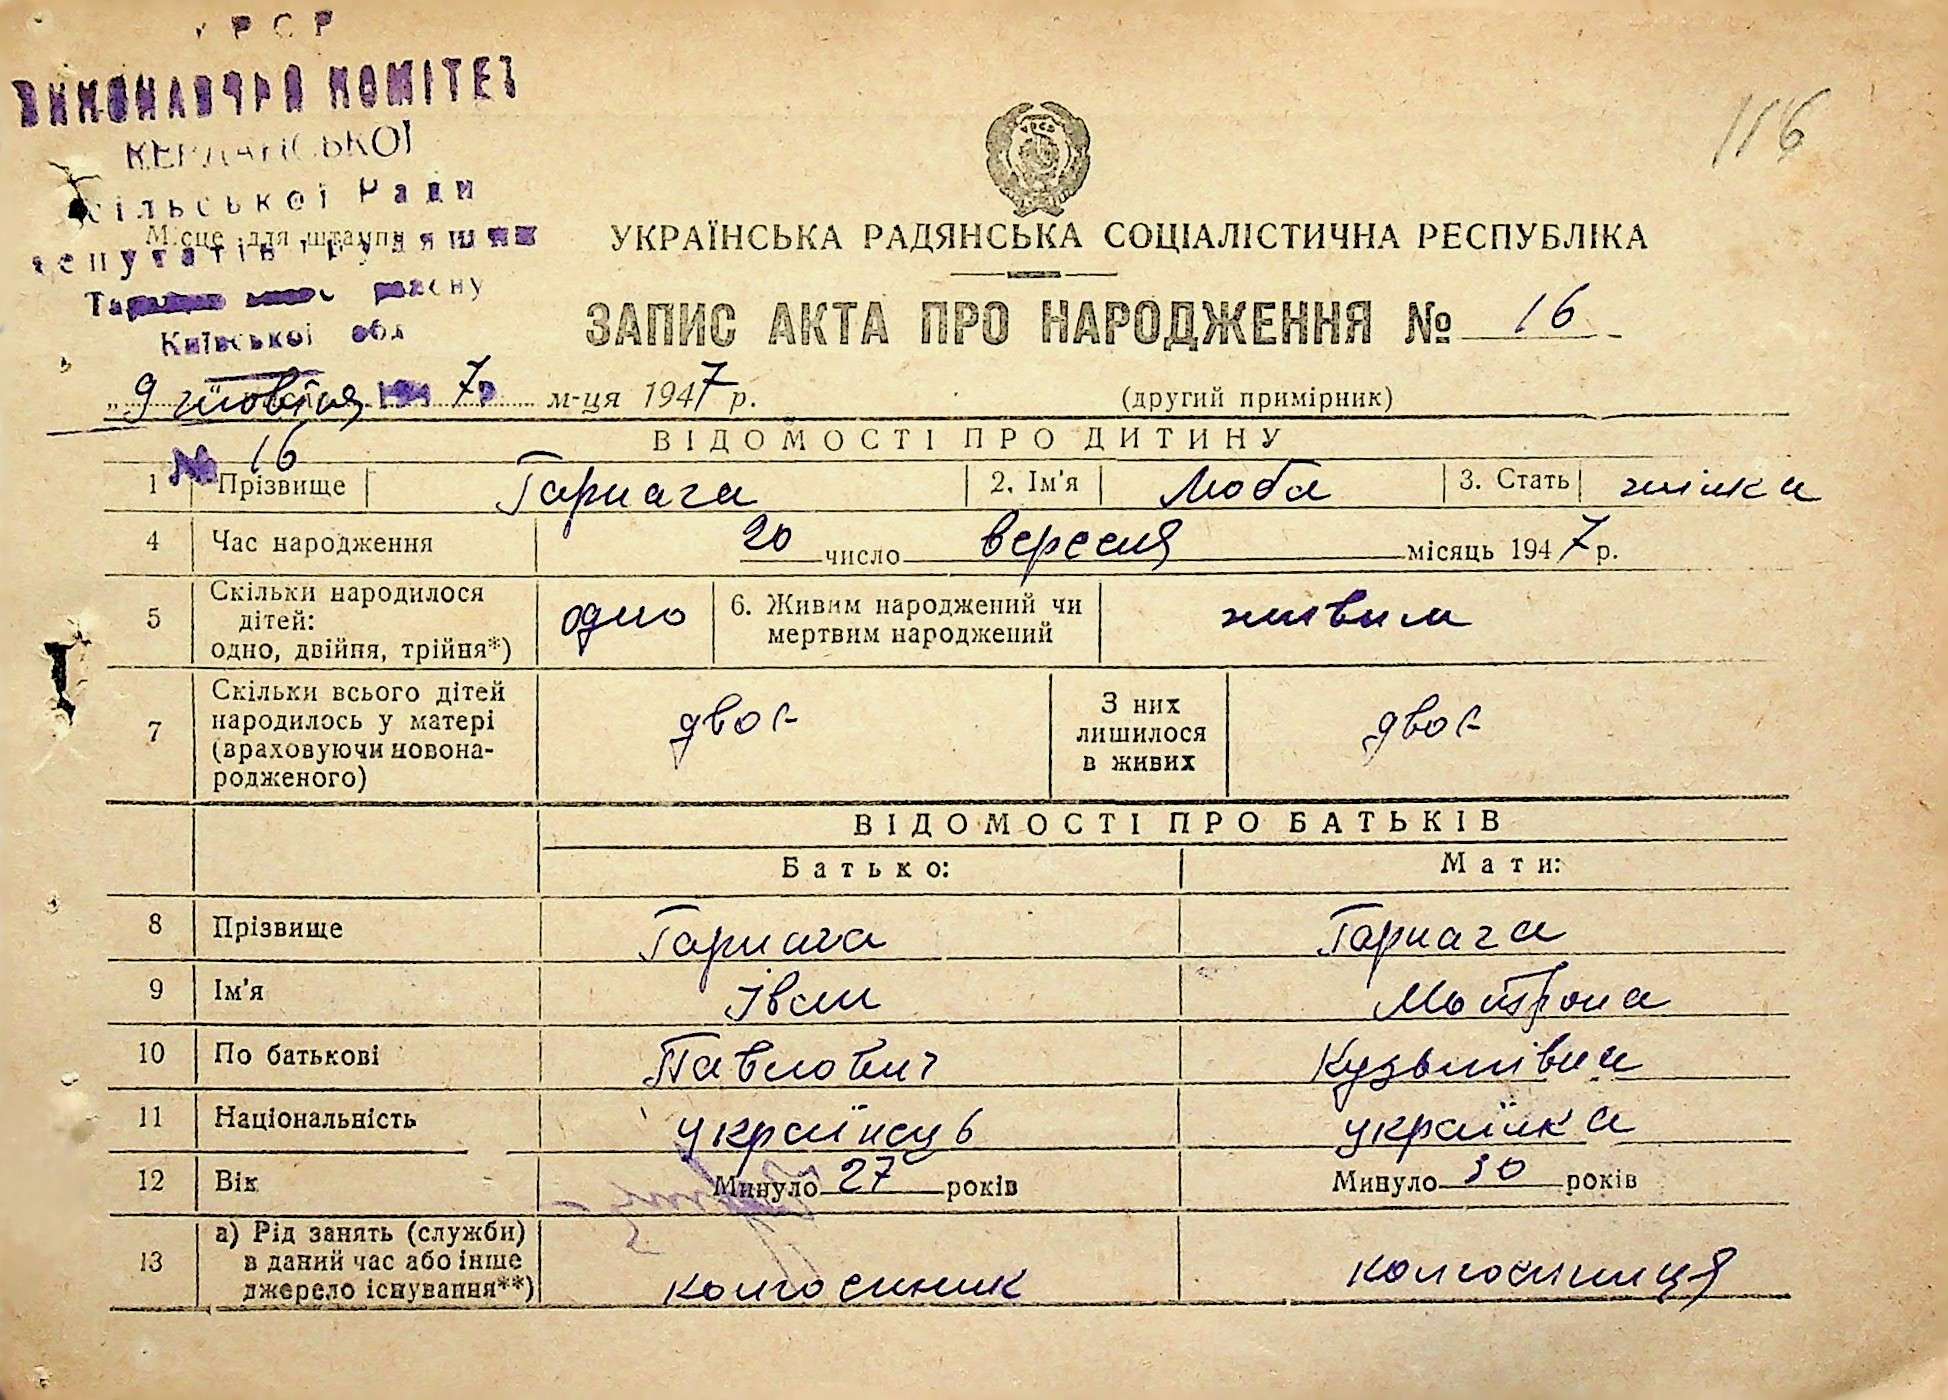 УРСР
ВИКОНАВЧИЙ КОМІТЕТ
КЕРДАНСЬКОЇ
сільської Ради
Місце для штампу
депутатів трудящих
району
Київської обл
116
УКРАЇНСЬКА РАДЯНСЬКА СОЦІАЛІСТИЧНА РЕСПУБЛІКА
ЗАПИС АКТА ПРО НАРОДЖЕННЯ № 16
9 жовтня 194 7 р м-ця 1947 р.
(другий примірник)
№ 16
ВІДОМОСТІ ПРО ДИТИНУ
1 Прізвище Гарнага 2. Ім'я Люба 3. Стать жінка
4 Час народження 20 число вересня місяць 1947 р.
5 Скільки народилося дітей: одно, двійня, трійня*) одно 6. Живим народжений чи мертвим народжений живим
7 Скільки всього дітей народилось у матері (враховуючи новонародженого) двоє З них лишилося в живих двоє
ВІДОМОСТІ ПРО БАТЬКІВ
Батько: Мати:
8 Прізвище Гарнага Гарнага
9 Ім'я Іван Мотрона
10 По батькові Павлович Кузьмівна
11 Національність українець українка
12 Вік Минуло 27 років Минуло 30 років
13 а) Рід занять (служби) в даний час або інше джерело існування**) колгосник колгосниця